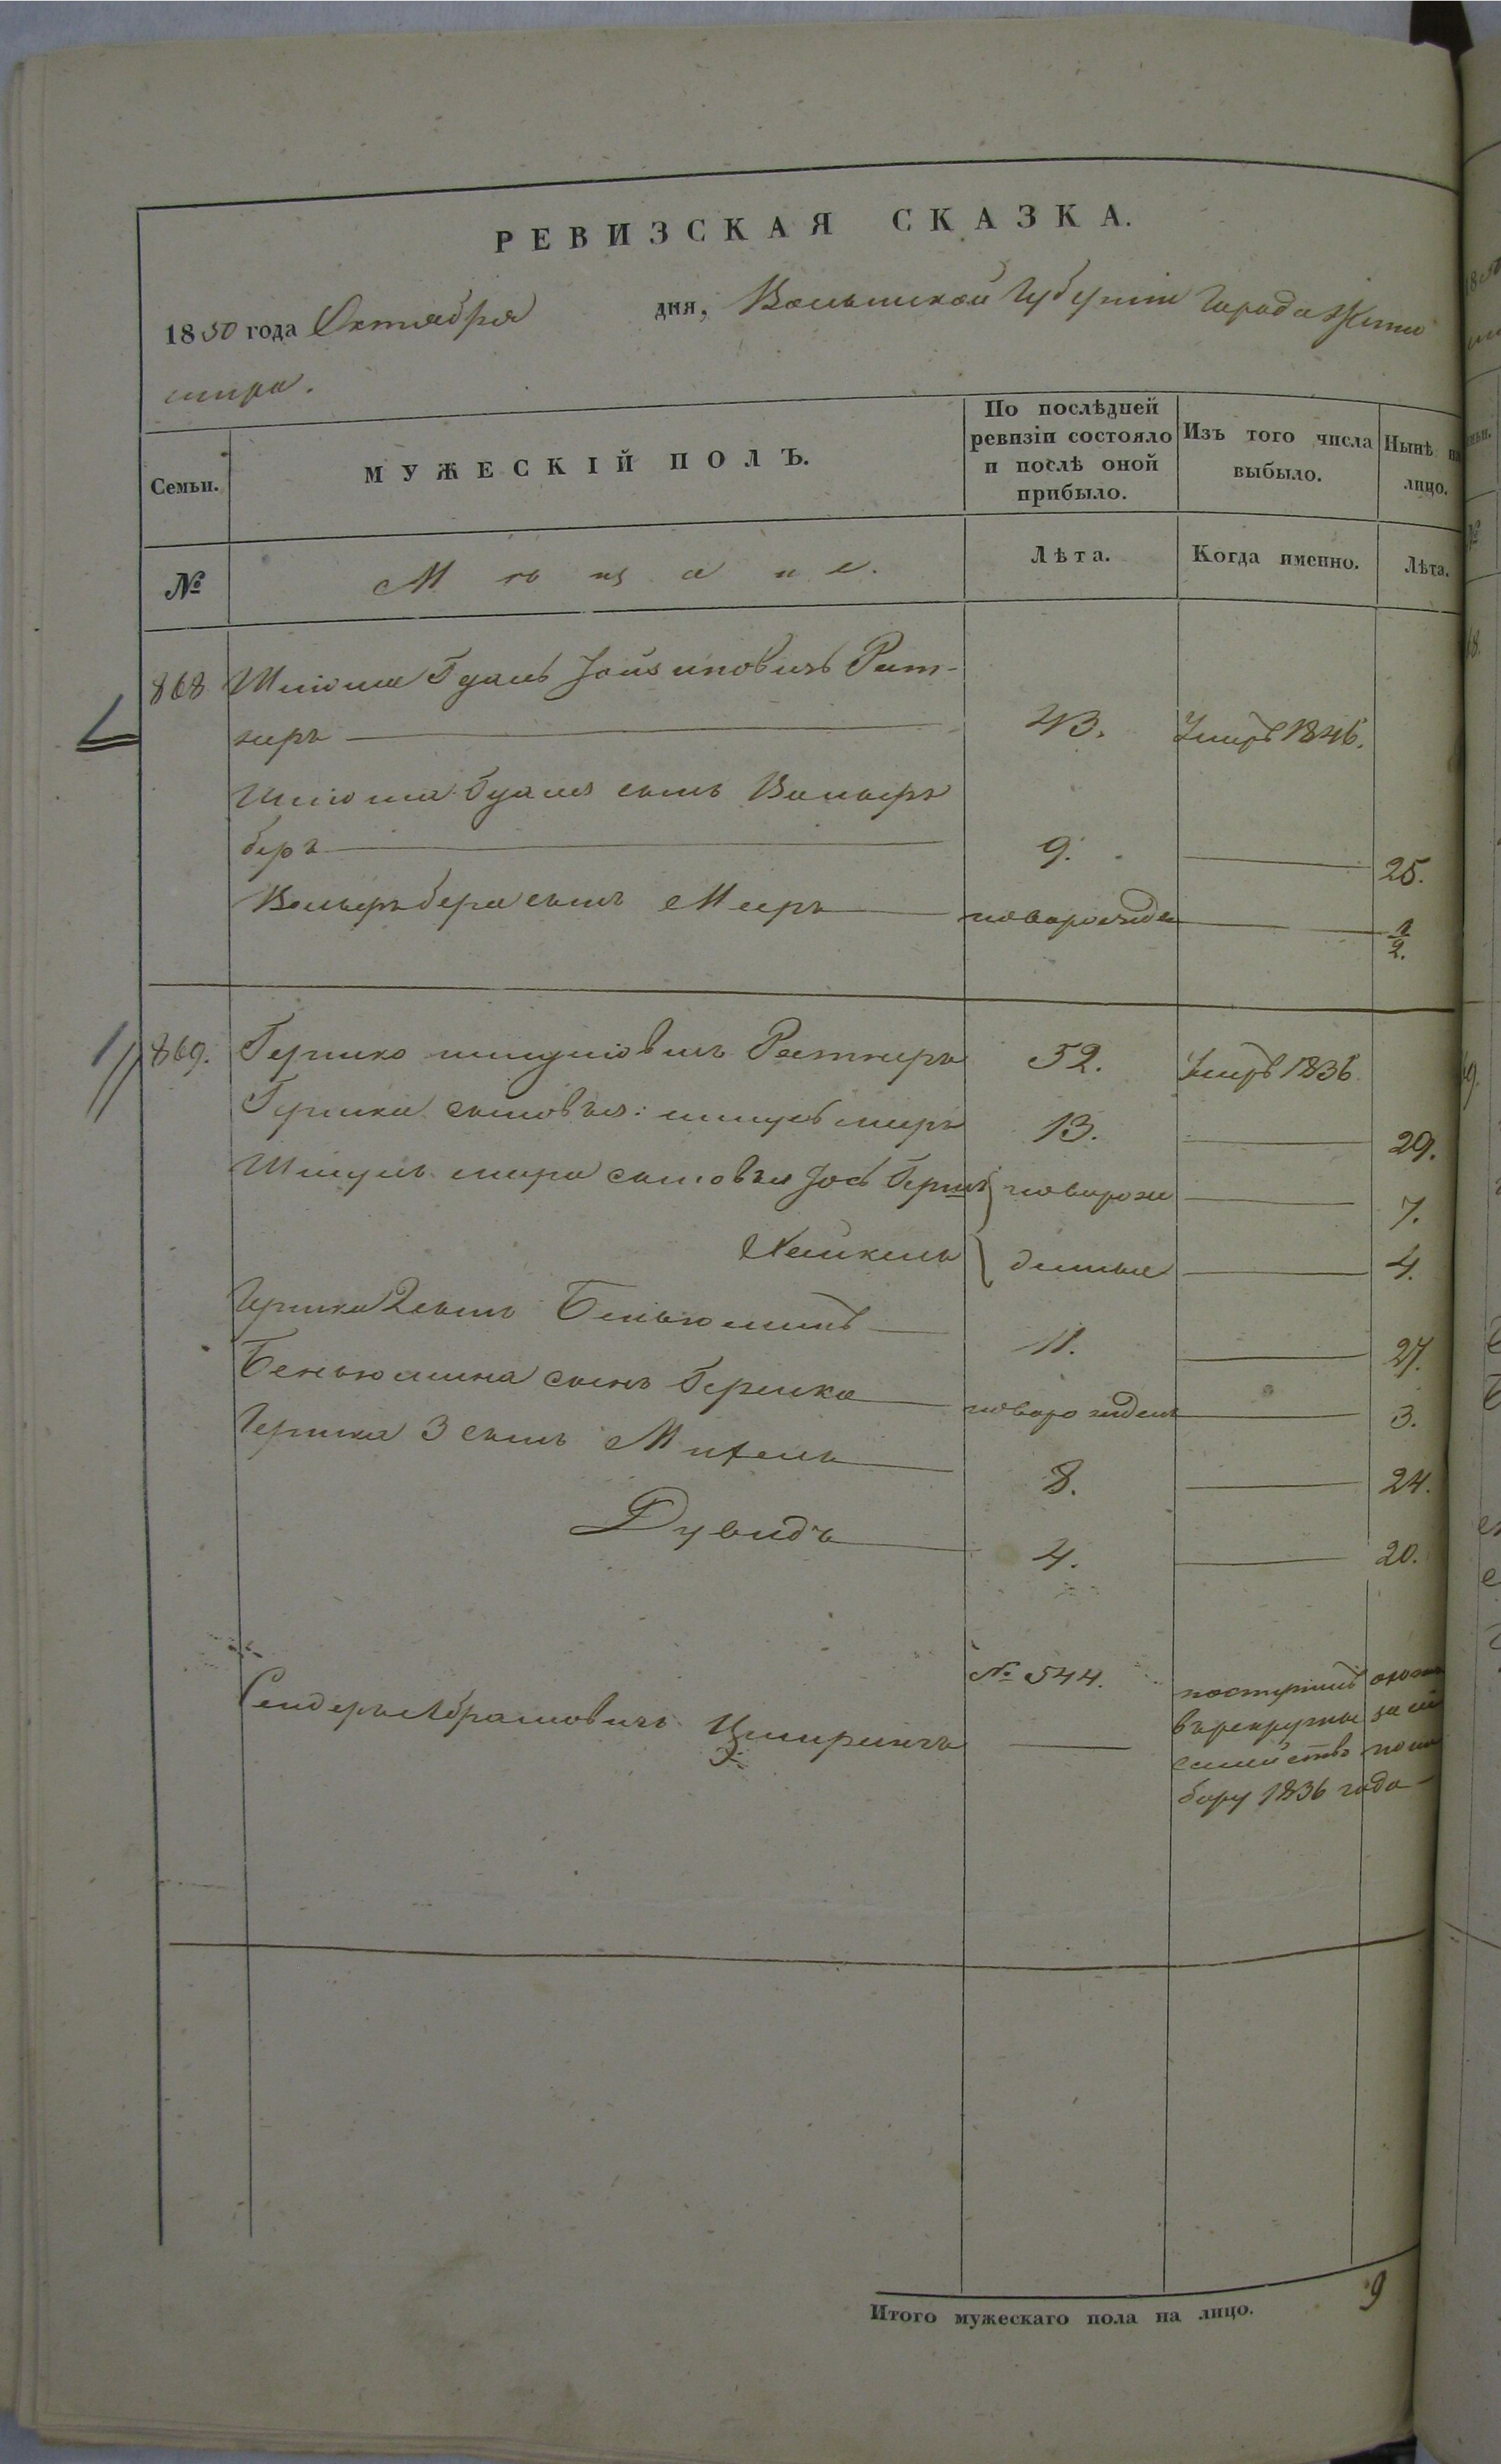 РЕВИЗСКАЯ СКАЗКА.
1850 года Октября дня, Волынской Губерніи Города Жито
мира.
Семьи. МУЖЕСКІЙ ПОЛЪ. По послѣдней ревизіи состояло и послѣ оной прибыло. Изъ того числа выбыло. Нынѣ на лицо.
№ Мѣщане. Лѣта. Когда именно. Лѣта.
868 Шлiома Гдаль Іойзиповичъ Рат-
неръ 43. Умеръ 1846.
Шлiома Гдаля сынъ Вольфъ
беръ 9. 25.
Вольфъ бера сынъ Мееръ новорожден 1/2.
869. Гершко шмулiовичъ Ратнеръ 52. Умеръ 1836
Гершка сыновья: шмуль меръ 13. 29.
Шмуль мера сыновья Іось Гершъ новорож 7.
Хайкель денные 4.
Гершка 2 сынъ Беньюминъ 11. 27.
Беньюмина сынъ Гершко новорожден 3.
Гершка 3 сынъ Михель 8. 24.
Дувидъ 4. 20.
№ 544.
Сендеръ Абрамовичъ поступилъ
въ рекруты за
семейство по
бору 1836 года
Итого мужескаго пола на лицо. 9